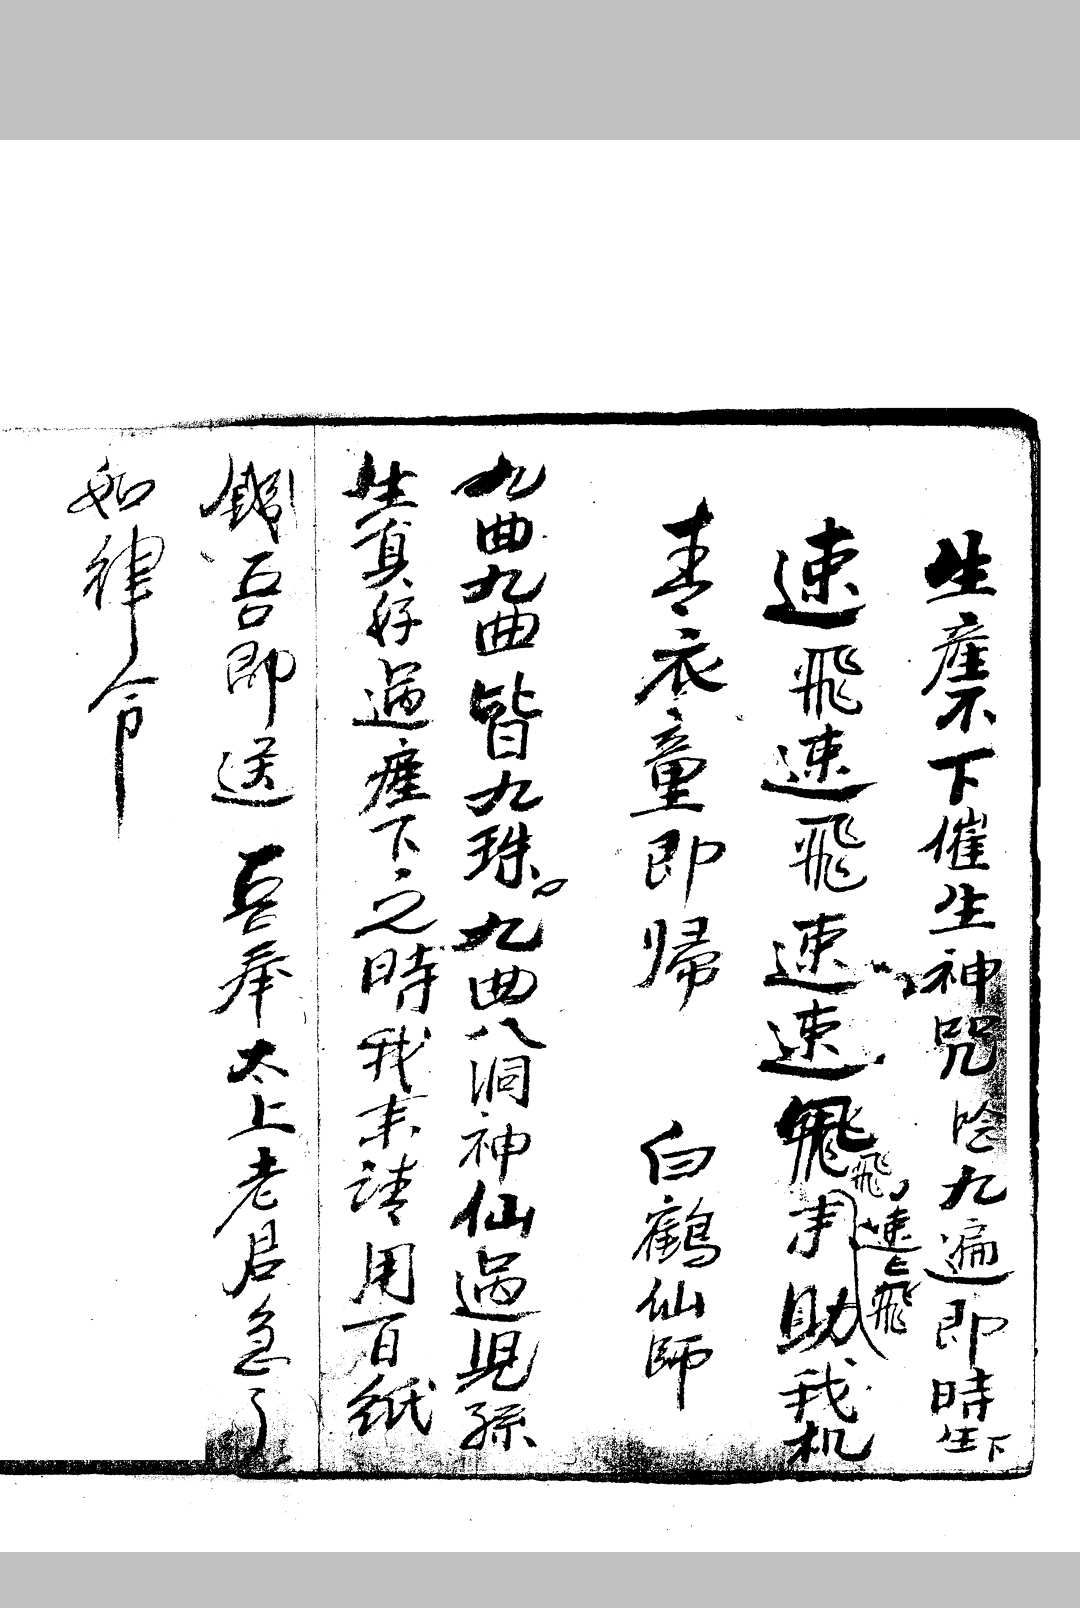 生産不下催生神咒唸九遍即時生下
速飛速飛速速飛
飛速飛
助我机
青衣童即歸 白鶴仙師
九曲九曲皆九珠九曲八洞神仙過兒孫
生真好過産下之時我來請用百紙
錢吾即送 吾奉太上老君急
如律令